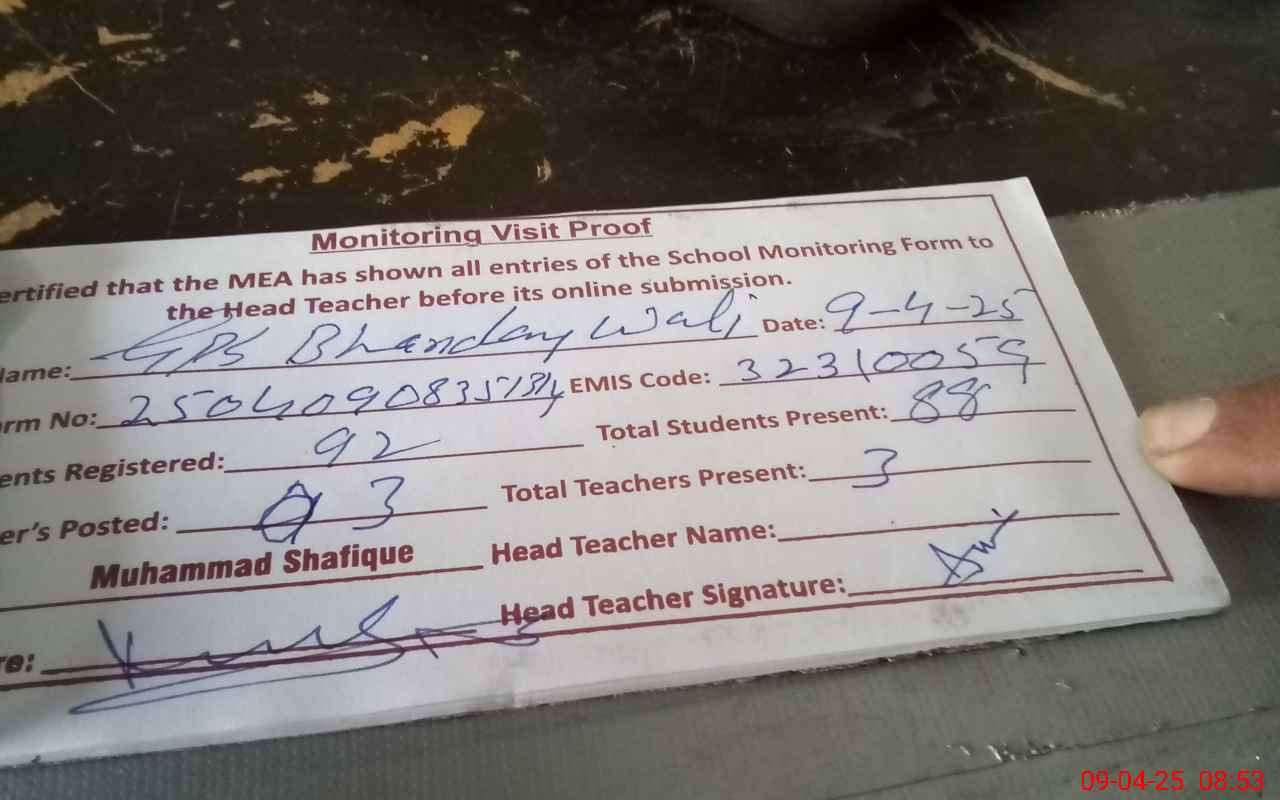 Monitoring Visit Proof
ertified that the MEA has shown all entries of the School Monitoring Form to
the Head Teacher before its online submission.
ame: GPS Bhanday Wali Date: 9-4-25
rm No: EMIS Code: 32310059
ents Registered: 92 Total Students Present: 88
er's Posted: 3 Total Teachers Present: 3
Muhammad Shafique Head Teacher Name:
re: Head Teacher Signature:
09-04-25 08:53